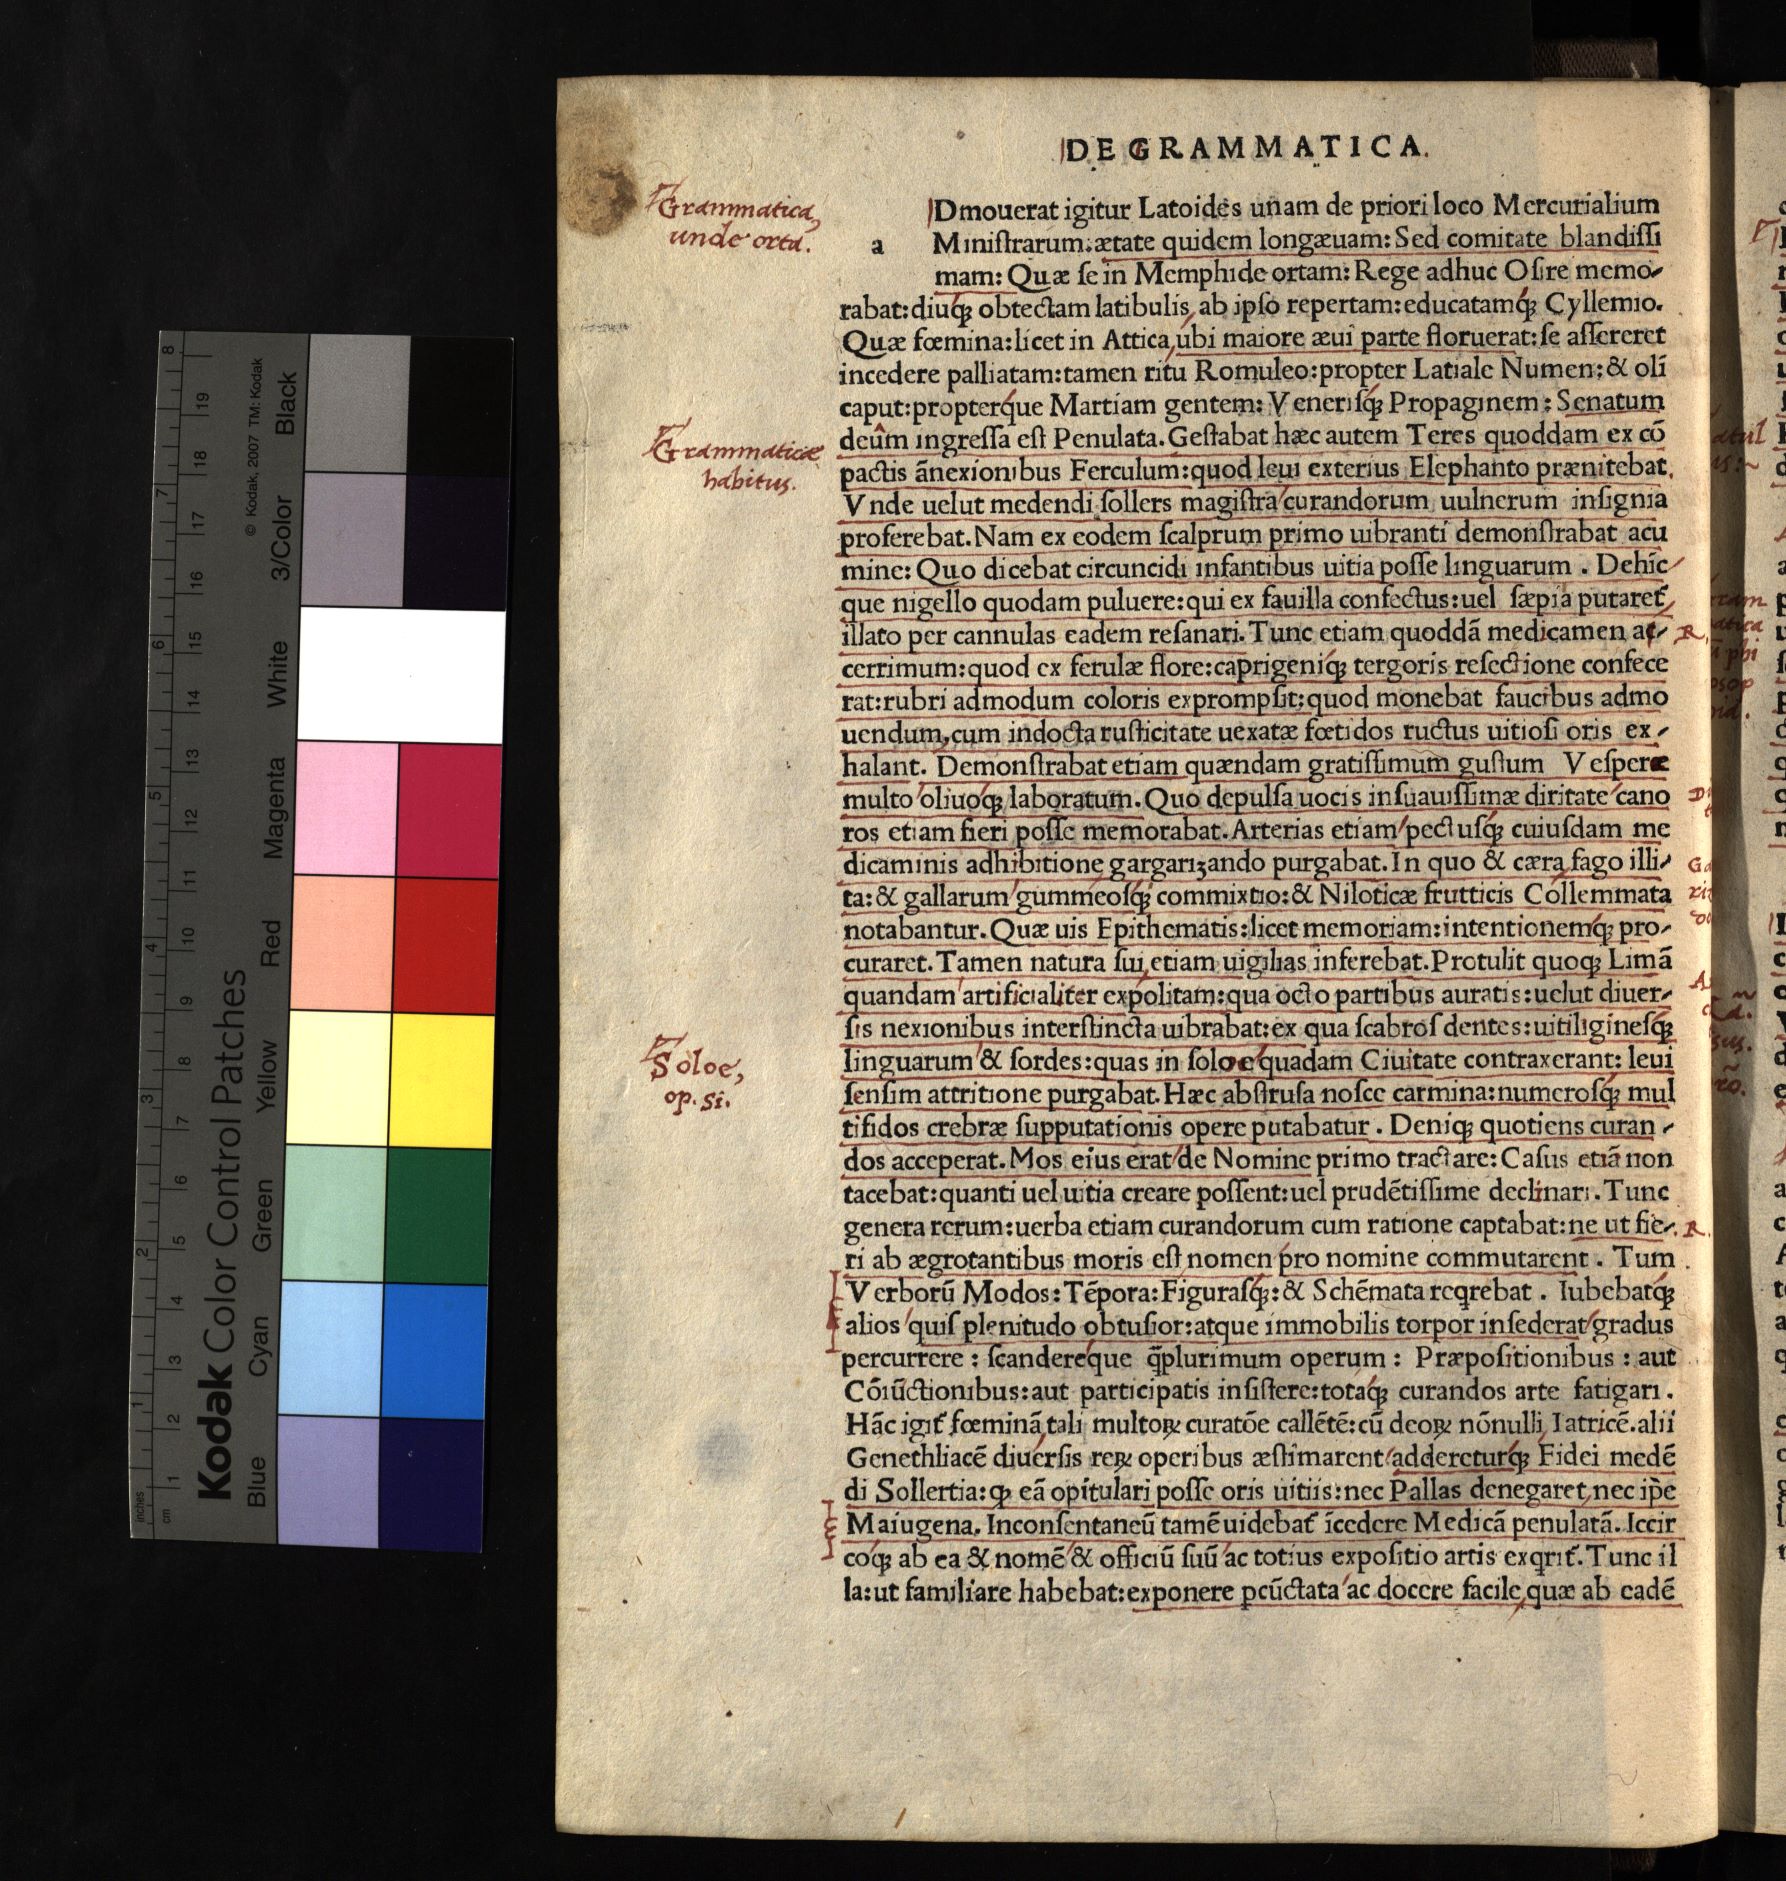 DE GRAMMATICA.
Grammatica,
unde orta.
a
Dmouerat igitur Latoides unam de priori loco Mercurialium
Miniſtrarum: ætate quidem longæuam: Sed comitate blandiſſi
mam: Quæ ſe in Memphide ortam: Rege adhuc Oſire memo-
rabat: diuq; obtectam latibulis, ab ipſo repertam: educatamq; Cyllemio.
Quæ fœmina: licet in Attica, ubi maiore æui parte floruerat: ſe aſſereret
incedere palliatam: tamen ritu Romuleo: propter Latiale Numen: & oli
caput: propterque Martiam gentem: Veneriſq; Propaginem: Senatum
deûm ingreſſa eſt Penulata. Geſtabat hæc autem Teres quoddam ex cō
pactis ānexionibus Ferculum: quod leui exterius Elephanto prænitebat.
Vnde uelut medendi ſollers magiſtra curandorum uulnerum inſignia
proferebat. Nam ex eodem ſcalprum primo uibranti demonſtrabat acu
mine: Quo dicebat circuncidi infantibus uitia poſſe linguarum. Dehīc
que nigello quodam puluere: qui ex fauilla confectus: uel ſæpia putaret̄
illato per cannulas eadem reſanari. Tunc etiam quoddā medicamen ac-
cerrimum: quod ex ferulæ flore: caprigeniq; tergoris reſectione confece
rat: rubri admodum coloris exprompſit: quod monebat faucibus admo
uendum, cum indocta ruſticitate uexatæ fœtidos ructus uitioſi oris ex-
halant. Demonſtrabat etiam quændam gratiſſimum guſtum Veſperæ
multo oliuoq; laboratum. Quo depulſa uocis inſuauiſſimæ diritate cano
ros etiam fieri poſſe memorabat. Arterias etiam pectuſq; cuiuſdam me
dicaminis adhibitione gargarizando purgabat. In quo & cæra fago illi-
ta: & gallarum gummeoſq; commixtio: & Niloticæ frutticis Collemmata
notabantur. Quæ uis Epithematis: licet memoriam: intentionemq; pro-
curaret. Tamen natura ſui, etiam uigilias inferebat. Protulit quoq; Limā
quandam artificialiter expolitam: qua octo partibus auratis: uelut diuer-
ſis nexionibus interſtincta uibrabat: ex qua ſcabroſ dentes: uitiligineſq;
linguarum & ſordes: quas in ſoloe quadam Ciuitate contraxerant: leui
ſenſim attritione purgabat. Hæc abſtruſa noſce carmina: numeroſq; mul
tifidos crebræ ſupputationis opere putabatur. Deniq; quotiens curan-
dos acceperat. Mos eius erat de Nomine primo tractare: Caſus etiā non
tacebat: quanti uel uitia creare poſſent: uel prudētiſſime declinari. Tunc
genera rerum: uerba etiam curandorum cum ratione captabat: ne ut fie-
ri ab ægrotantibus moris eſt nomen pro nomine commutarent. Tum
Verborū Modos: Tēpora: Figuraſq;: & Schēmata reqrebat. Iubebatq;
alios quiſ plenitudo obtuſior: atque immobilis torpor inſederat gradus
percurrere: ſcandereque q̄plurimum operum: Præpoſitionibus: aut
Cōiūctionibus: aut participatis inſiſtere: totaq; curandos arte fatigari.
Hāc igit̄ fœminā tali multoꝝ curatōe callētē: cū deoꝝ nōnulli Iatricē. alii
Genethliacē diuerſis reꝝ operibus æſtimarent addereturq; Fidei medē
di Sollertia: ꝙ eā opitulari poſſe oris uitiis: nec Pallas denegaret, nec ip̄e
Maiugena. Inconſentaneū tamē uidebat̄ īcedere Medicā penulatā. Iccir
coq; ab ea & nomē & officiū ſuū ac totius expoſitio artis exqrit̄. Tunc il
la: ut familiare habebat: exponere ꝑcūctata ac docere facile, quæ ab eadē
Grammaticæ
habitus.
Soloe,
op. si.
R.
R.
Kodak Color Control Patches
© Kodak, 2007 TM: Kodak
Blue Cyan Green Yellow Red Magenta White 3/Color Black
inches 1 2 3 4 5 6 7 8
cm 1 2 3 4 5 6 7 8 9 10 11 12 13 14 15 16 17 18 19